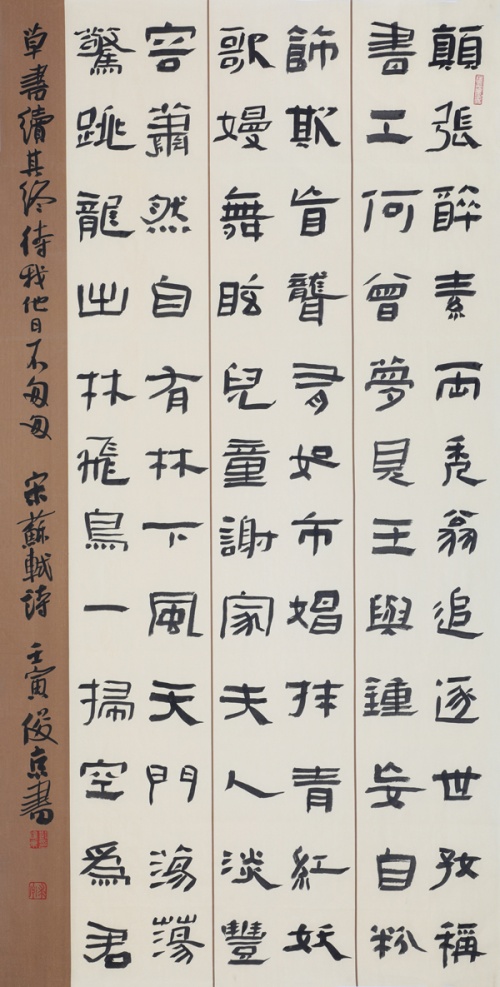 顛張醉素兩禿翁追逐世好稱
書工何曾夢見王與鍾妄自粉
飾欺盲聾有如市娼抹青紅妖
歌嫚舞眩兒童謝家夫人淡豐
容蕭然自有林下風天門蕩蕩
驚跳龍出林飛鳥一掃空爲君
草書續其終待我他日不匆匆 宋蘇軾詩 壬寅俊京書